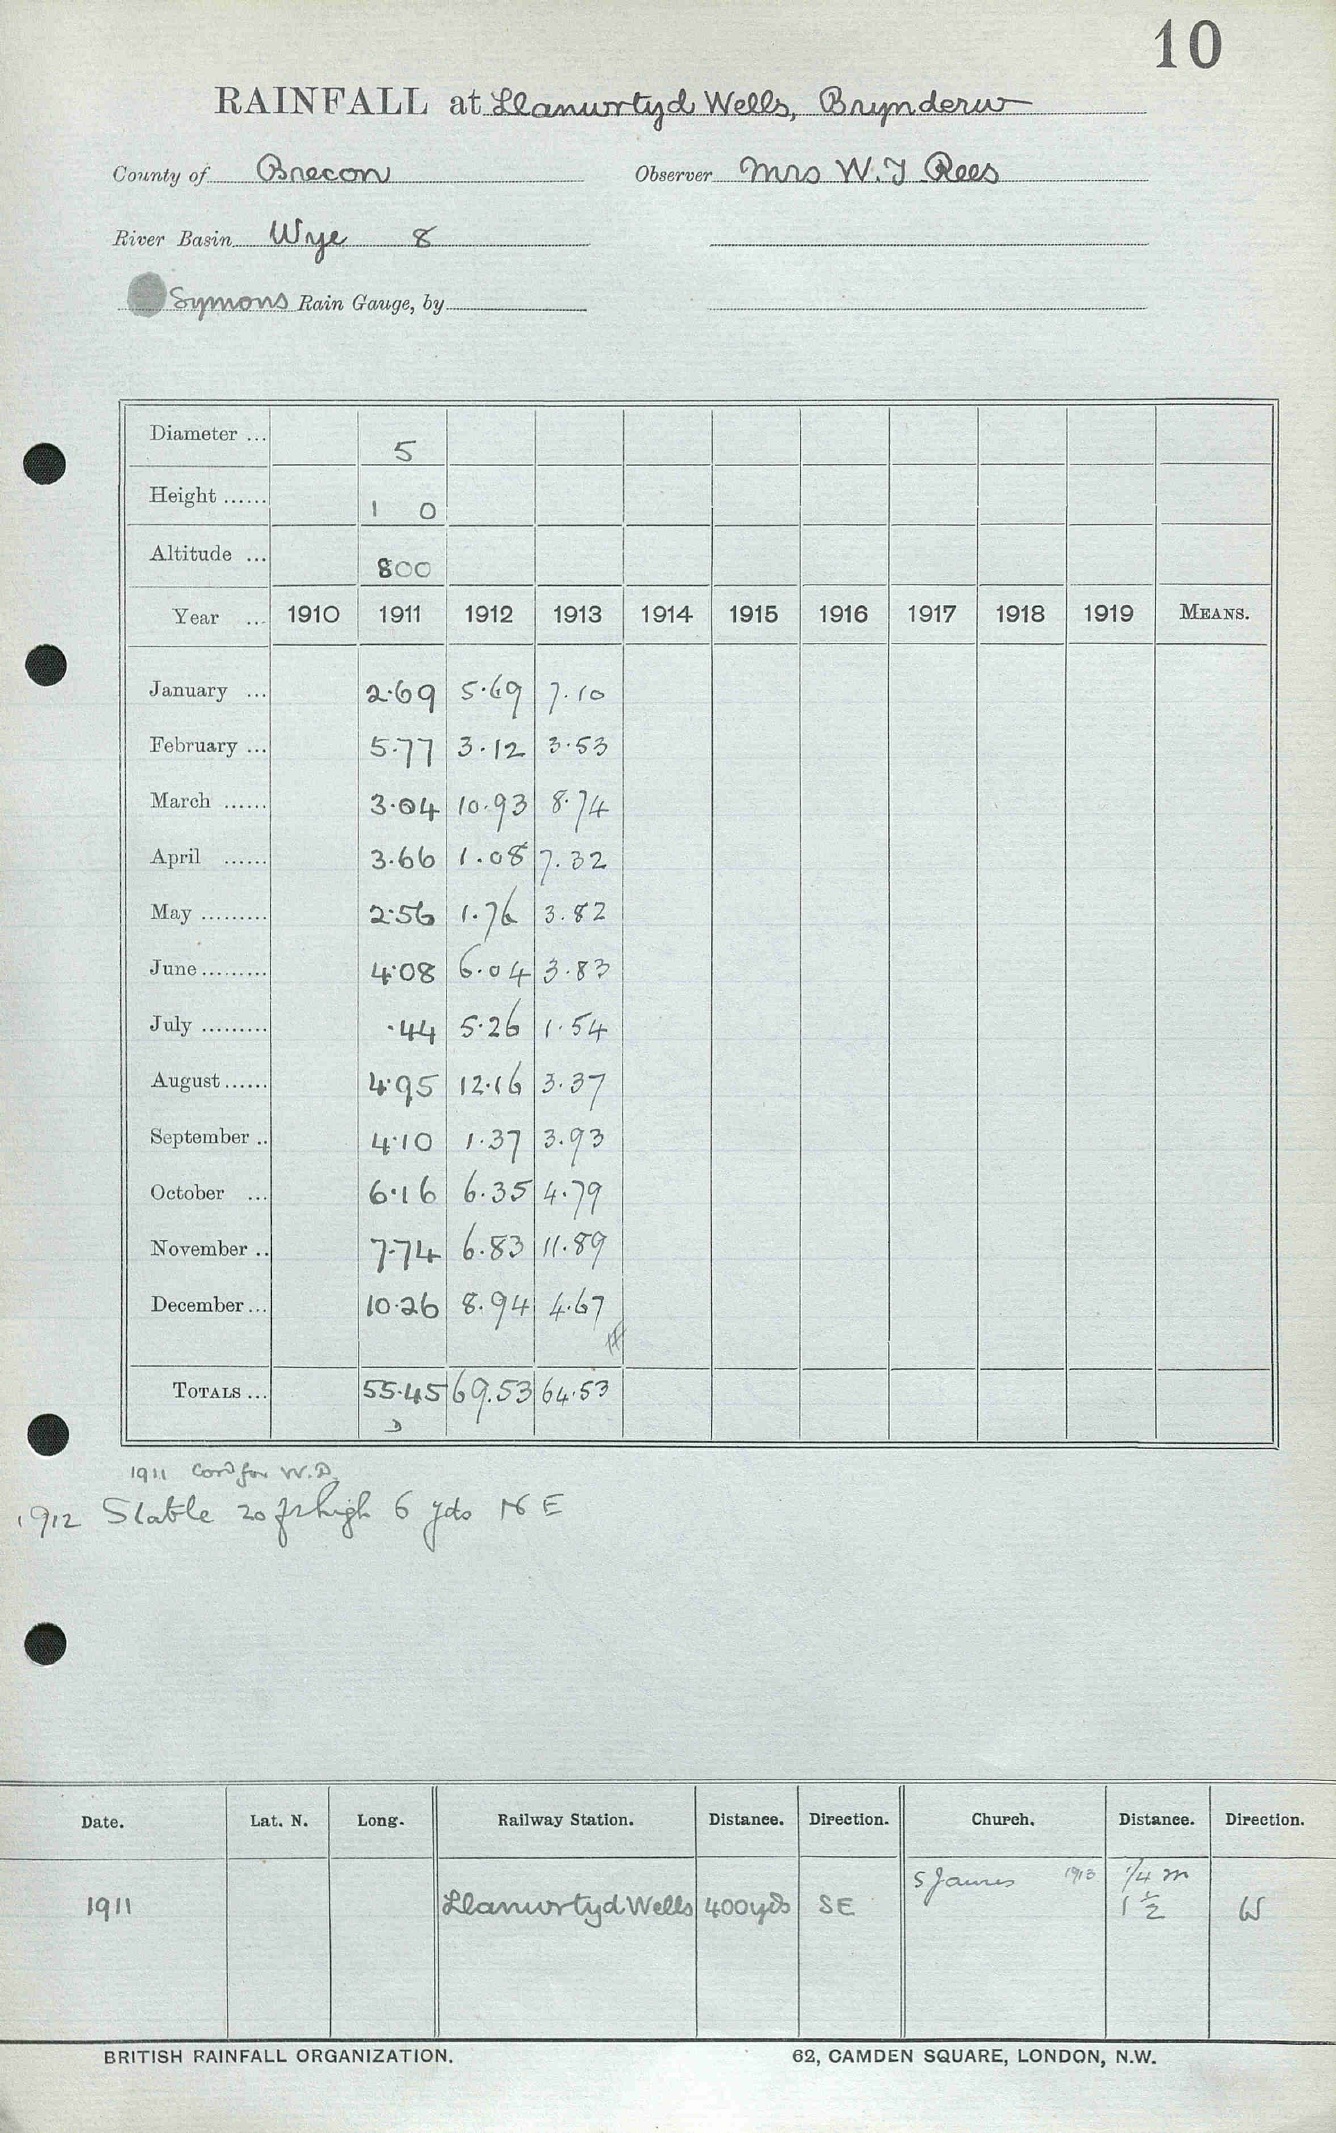 10
RAINFALL at Llanwrtyd Wells, Brynderw
County of Brecon Observer Mrs W. J Rees
River Basin Wye 8
Symons Rain Gauge, by
Diameter ... 5
Height ...... 1 0
Altitude ... 800
Year ... 1910 1911 1912 1913 1914 1915 1916 1917 1918 1919 MEANS.
January ... 2.69 5.69 7.10
February ... 5.77 3.12 3.53
March ...... 3.04 10.93 8.74
April ...... 3.66 1.08 7.32
May ......... 2.56 1.76 3.82
June ......... 4.08 6.04 3.83
July ......... .44 5.26 1.54
August ...... 4.95 12.16 3.37
September .. 4.10 1.37 3.93
October ... 6.16 6.35 4.79
November .. 7.74 6.83 11.89
December ... 10.26 8.94 4.67
TOTALS ... 55.45 69.53 64.53
1911 Cord for W.D.
1912 Stable 20 ft high 6 yds N E
Date. Lat. N. Long. Railway Station. Distance. Direction. Church. Distance. Direction.
S James 1913 1/4 m
1911 Llanwrtyd Wells 400 yds SE 1 1/2 W
BRITISH RAINFALL ORGANIZATION. 62, CAMDEN SQUARE, LONDON, N.W.